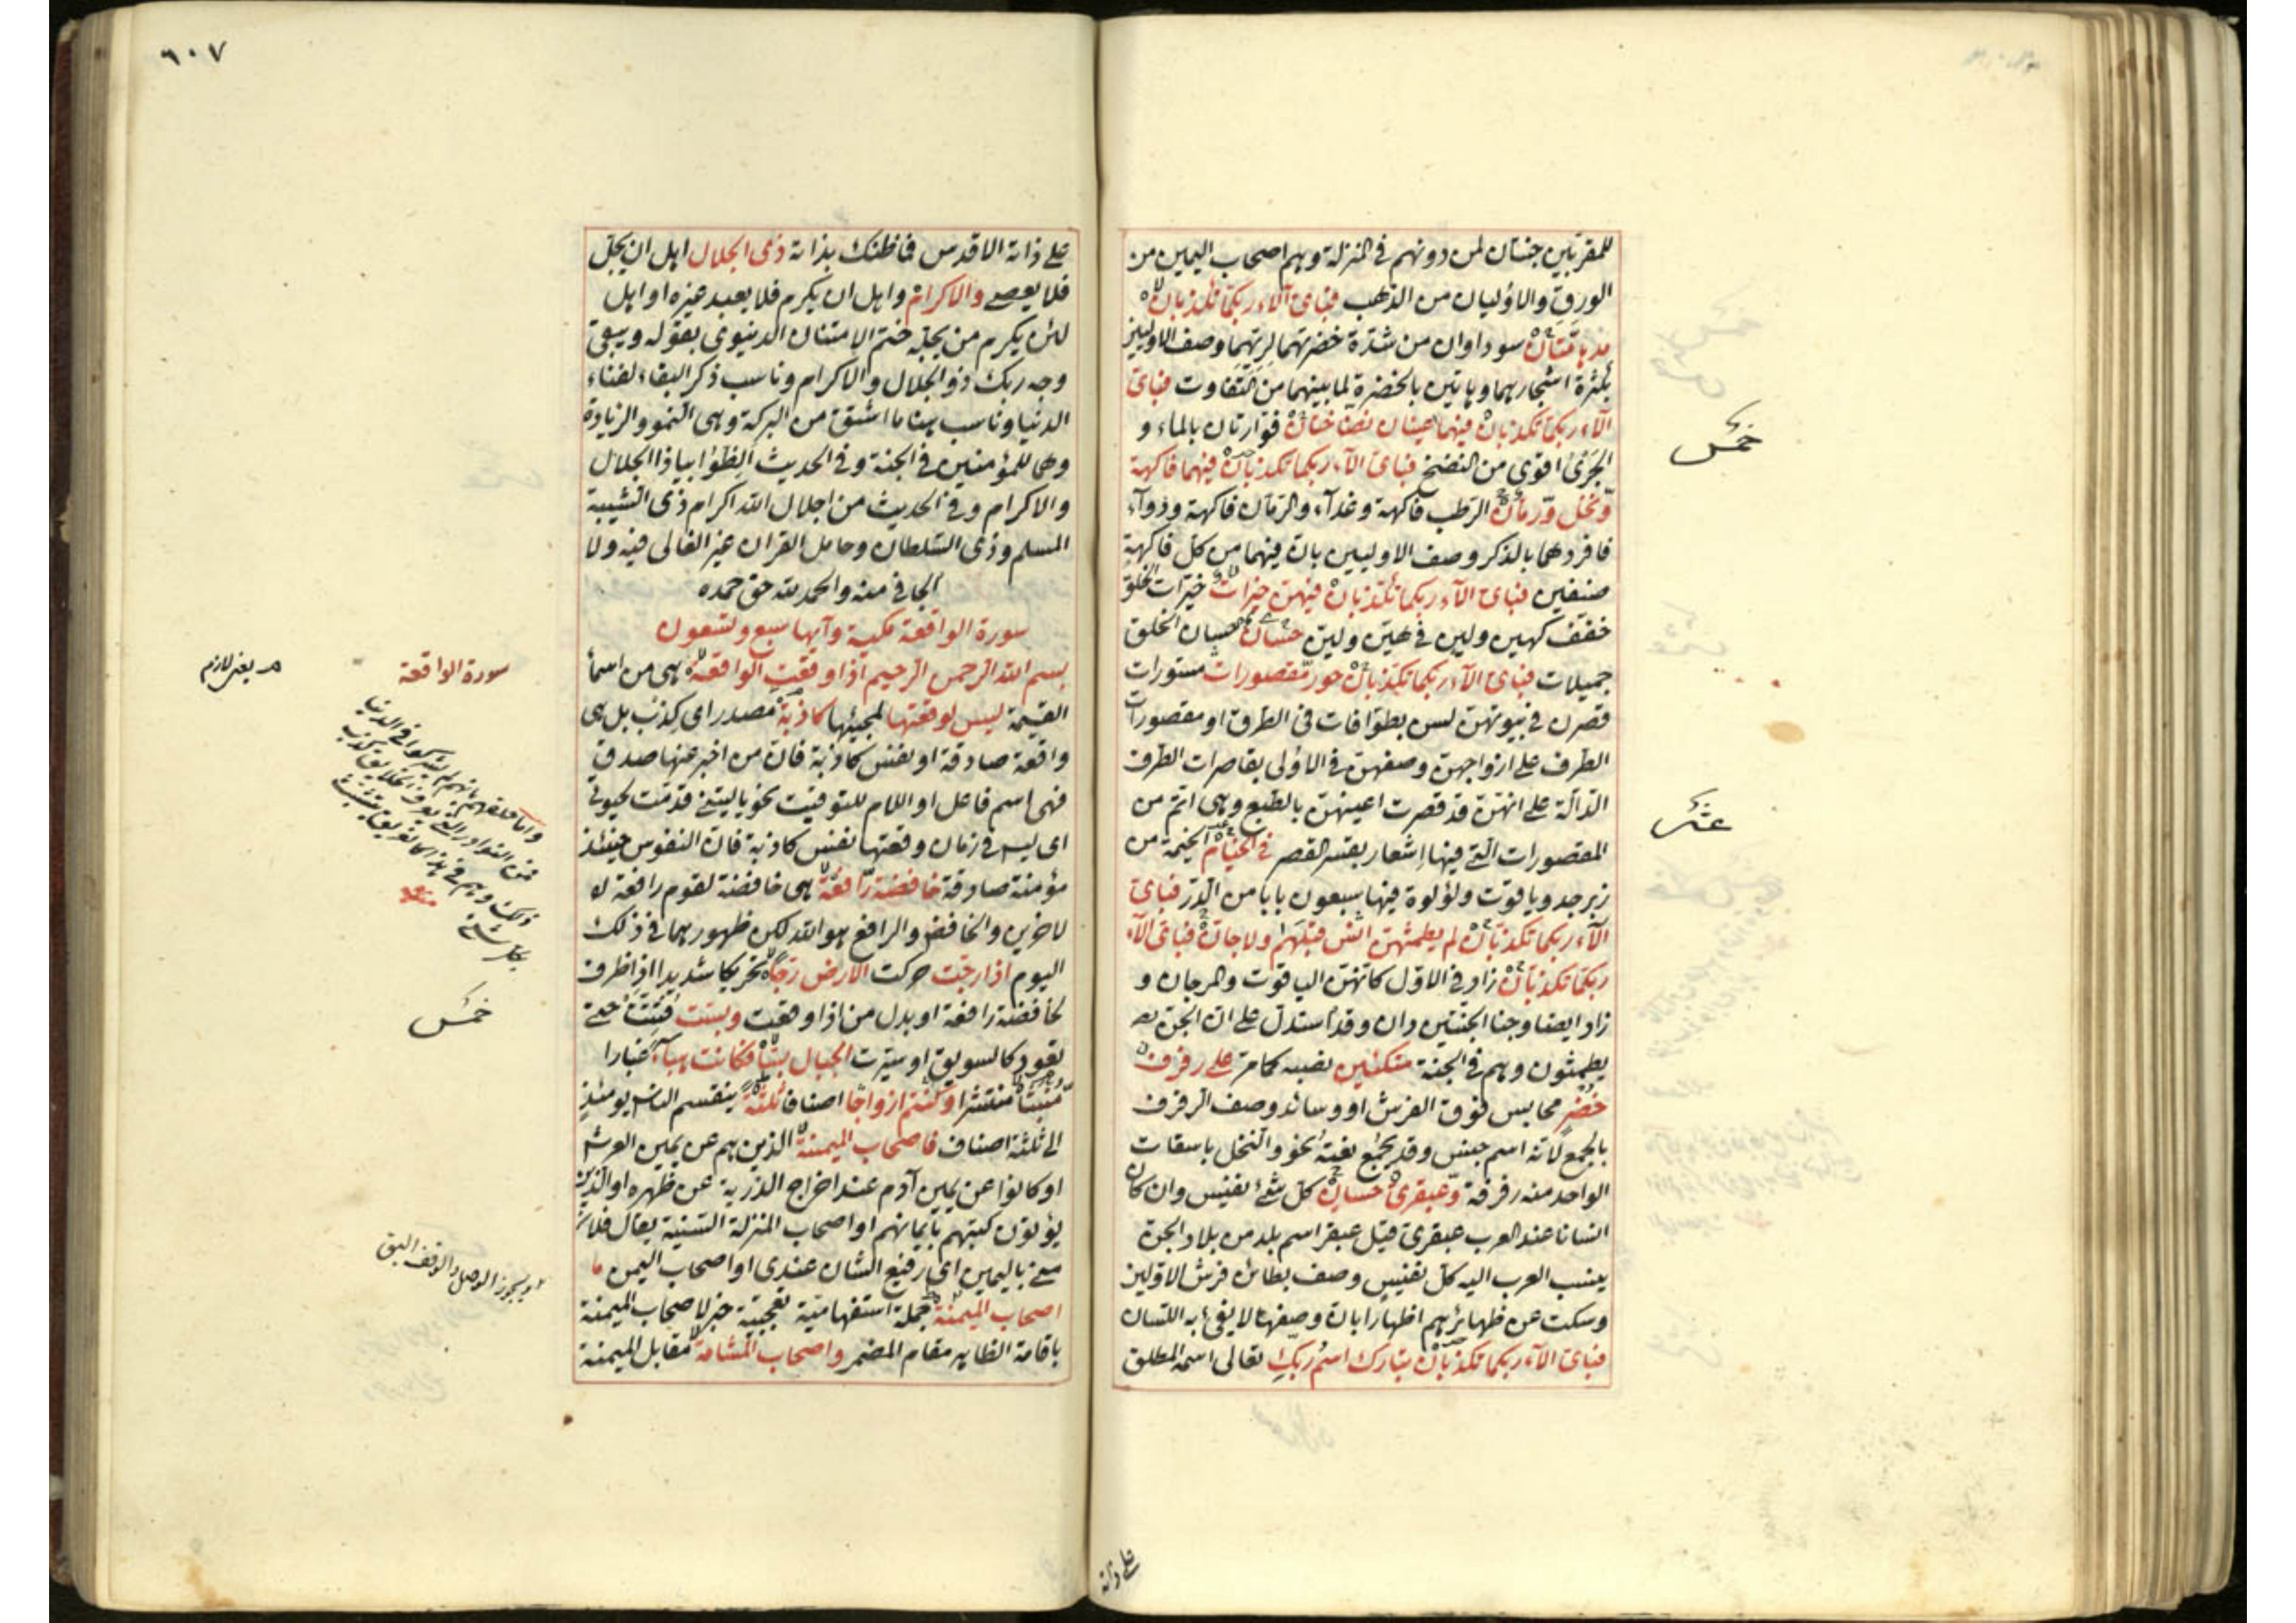 للمقربين جنتان لمن دونهم فى المنزلة وهم اصحاب اليمين من
الورق والاوليان من الذهب فباى آلاء ربكما تكذبان لا
مدهامتان سوداوان من شدة خضرتهما لريهما وصف الاوليين
بكثرة اشجارهما وهاتين بالخضرة لما بينهما من التفاوت فباى
آلاء ربكما تكذبان فيهما عينان نضاختان فوارتان بالماء و
الجرى اقوى من النضخ فباى آلاء ربكما تكذبان فيهما فاكهة
ونخل ورمان الرطب فاكهة وغذاء والرمان فاكهة ودواء
فافردهما بالذكر وصف الاوليين بان فيهما من كل فاكهة
صنفين فباى آلاء ربكما تكذبان فيهن خيرات خيرات الخلق
خفف كهين ولين فى هين ولين حسان حسان الخلق
جميلات فباى آلاء ربكما تكذبان حور مقصورات مستورات
قصرن فى بيوتهن لسن بطوافات فى الطرق او مقصورات
الطرف على ازواجهن وصفهن فى الاولى بقاصرات الطرف
الدالة على انهن قد قصرت اعينهن بالطبع وهى اتم من
المقصورات التى فيها اشعار بقسر القصر فى الخيام الخيمة من
زبرجد وياقوت ولؤلوة فيها سبعون بابا من الدر فباى
آلاء ربكما تكذبان لم يطمثهن انس قبلهم ولا جان فباى آلاء
ربكما تكذبان زاد فى الاول كانهن الياقوت والمرجان و
زاد ايضا وجنا الجنتين دان وقد استدل على ان الجن
يطمثون وهم فى الجنة متكئين نصبه كما مر على رفرف
خضر محابس فوق الفرش او وسائد وصف الرفرف
بالجمع لانه اسم جنس وقد يجمع نعته نحو والنخل باسقات
الواحد منه رفرفة وعبقرى حسان كل شئ نفيس وان كان
انسانا عند العرب عبقرى قيل عبقر اسم بلد من بلاد الجن
ينسب العرب اليه كل نفيس وصف بطائن فرش الاولين
وسكت عن ظهائرهم اظهارا بان وصفها لا يفى به اللسان
فباى آلاء ربكما تكذبان تبارك اسم ربك تعالى اسمه المطلق
خمس
عشر
على ذاته
٦٠٧
على ذاته الاقدس فما ظنك بذاته ذى الجلال اهل ان يجل
فلا يعصى والاكرام واهل ان يكرم فلا يعبد غيره او اهل
لئن يكرم من يجله ختم الامتنان الدنيوى بقوله ويبقى
وجه ربك ذو الجلال والاكرام وناسب ذكر البقاء لفناء
الدنيا وناسب هنا ما اشتق من البركة وهى النمو والزيادة
وهما للمؤمنين فى الجنة وفى الحديث الظوا بيا ذا الجلال
والاكرام وفى الحديث من اجلال الله اكرام ذى الشيبة
المسلم وذى السلطان وحامل القران غير الغالى فيه ولا
الجافى منه والحمد لله حق حمده
سورة الواقعة مكية وآيها سبع وتسعون
بسم الله الرحمن الرحيم اذا وقعت الواقعة هى من اسماء
القيمة ليس لوقعتها لمجيئها كاذبة مصدر اى كذب بل هى
واقعة صادقة او نفس كاذبة فان من اخبر عنها صدق
فهى اسم فاعل او اللام للتوقيت نحو يا ليتنى قدمت لحيوتى
اى ليس فى زمان وقعتها نفس كاذبة فان النفوس حينئذ
مؤمنة صادقة خافضة رافعة هى خافضة لقوم رافعة
لاخرين والخافض والرافع هو الله لكن ظهورهما فى ذلك
اليوم اذا رجت حركت الارض رجا تحريكا شديدا اذا ظرف
لخافضة رافعة او بدل من اذا وقعت وبست فتتت حتى
تعود كالسويق او سيرت الجبال بسا فكانت هباء غبارا
منبثا منتشرا وكنتم ازواجا اصنافا ثلثة ينقسم الناس يومئذ
الى ثلثة اصناف فاصحاب الميمنة الذين هم عن يمين العرش
او كانوا عن يمين آدم عند اخراج الذرية عن ظهره او الذين
يؤتون كتبهم بايمانهم او اصحاب المنزلة السنية يقال فلان
منى باليمين اى رفيع الشان عندى او اصحاب اليمن ما
اصحاب الميمنة جملة استفهامية تعجبية خبر لاصحاب الميمنة
باقامة الظاهر مقام المضمر واصحاب المشامة مقابل الميمنة
سورة الواقعة
يعنى لازم
خمس
او يجوز الوصل والوقف اليق